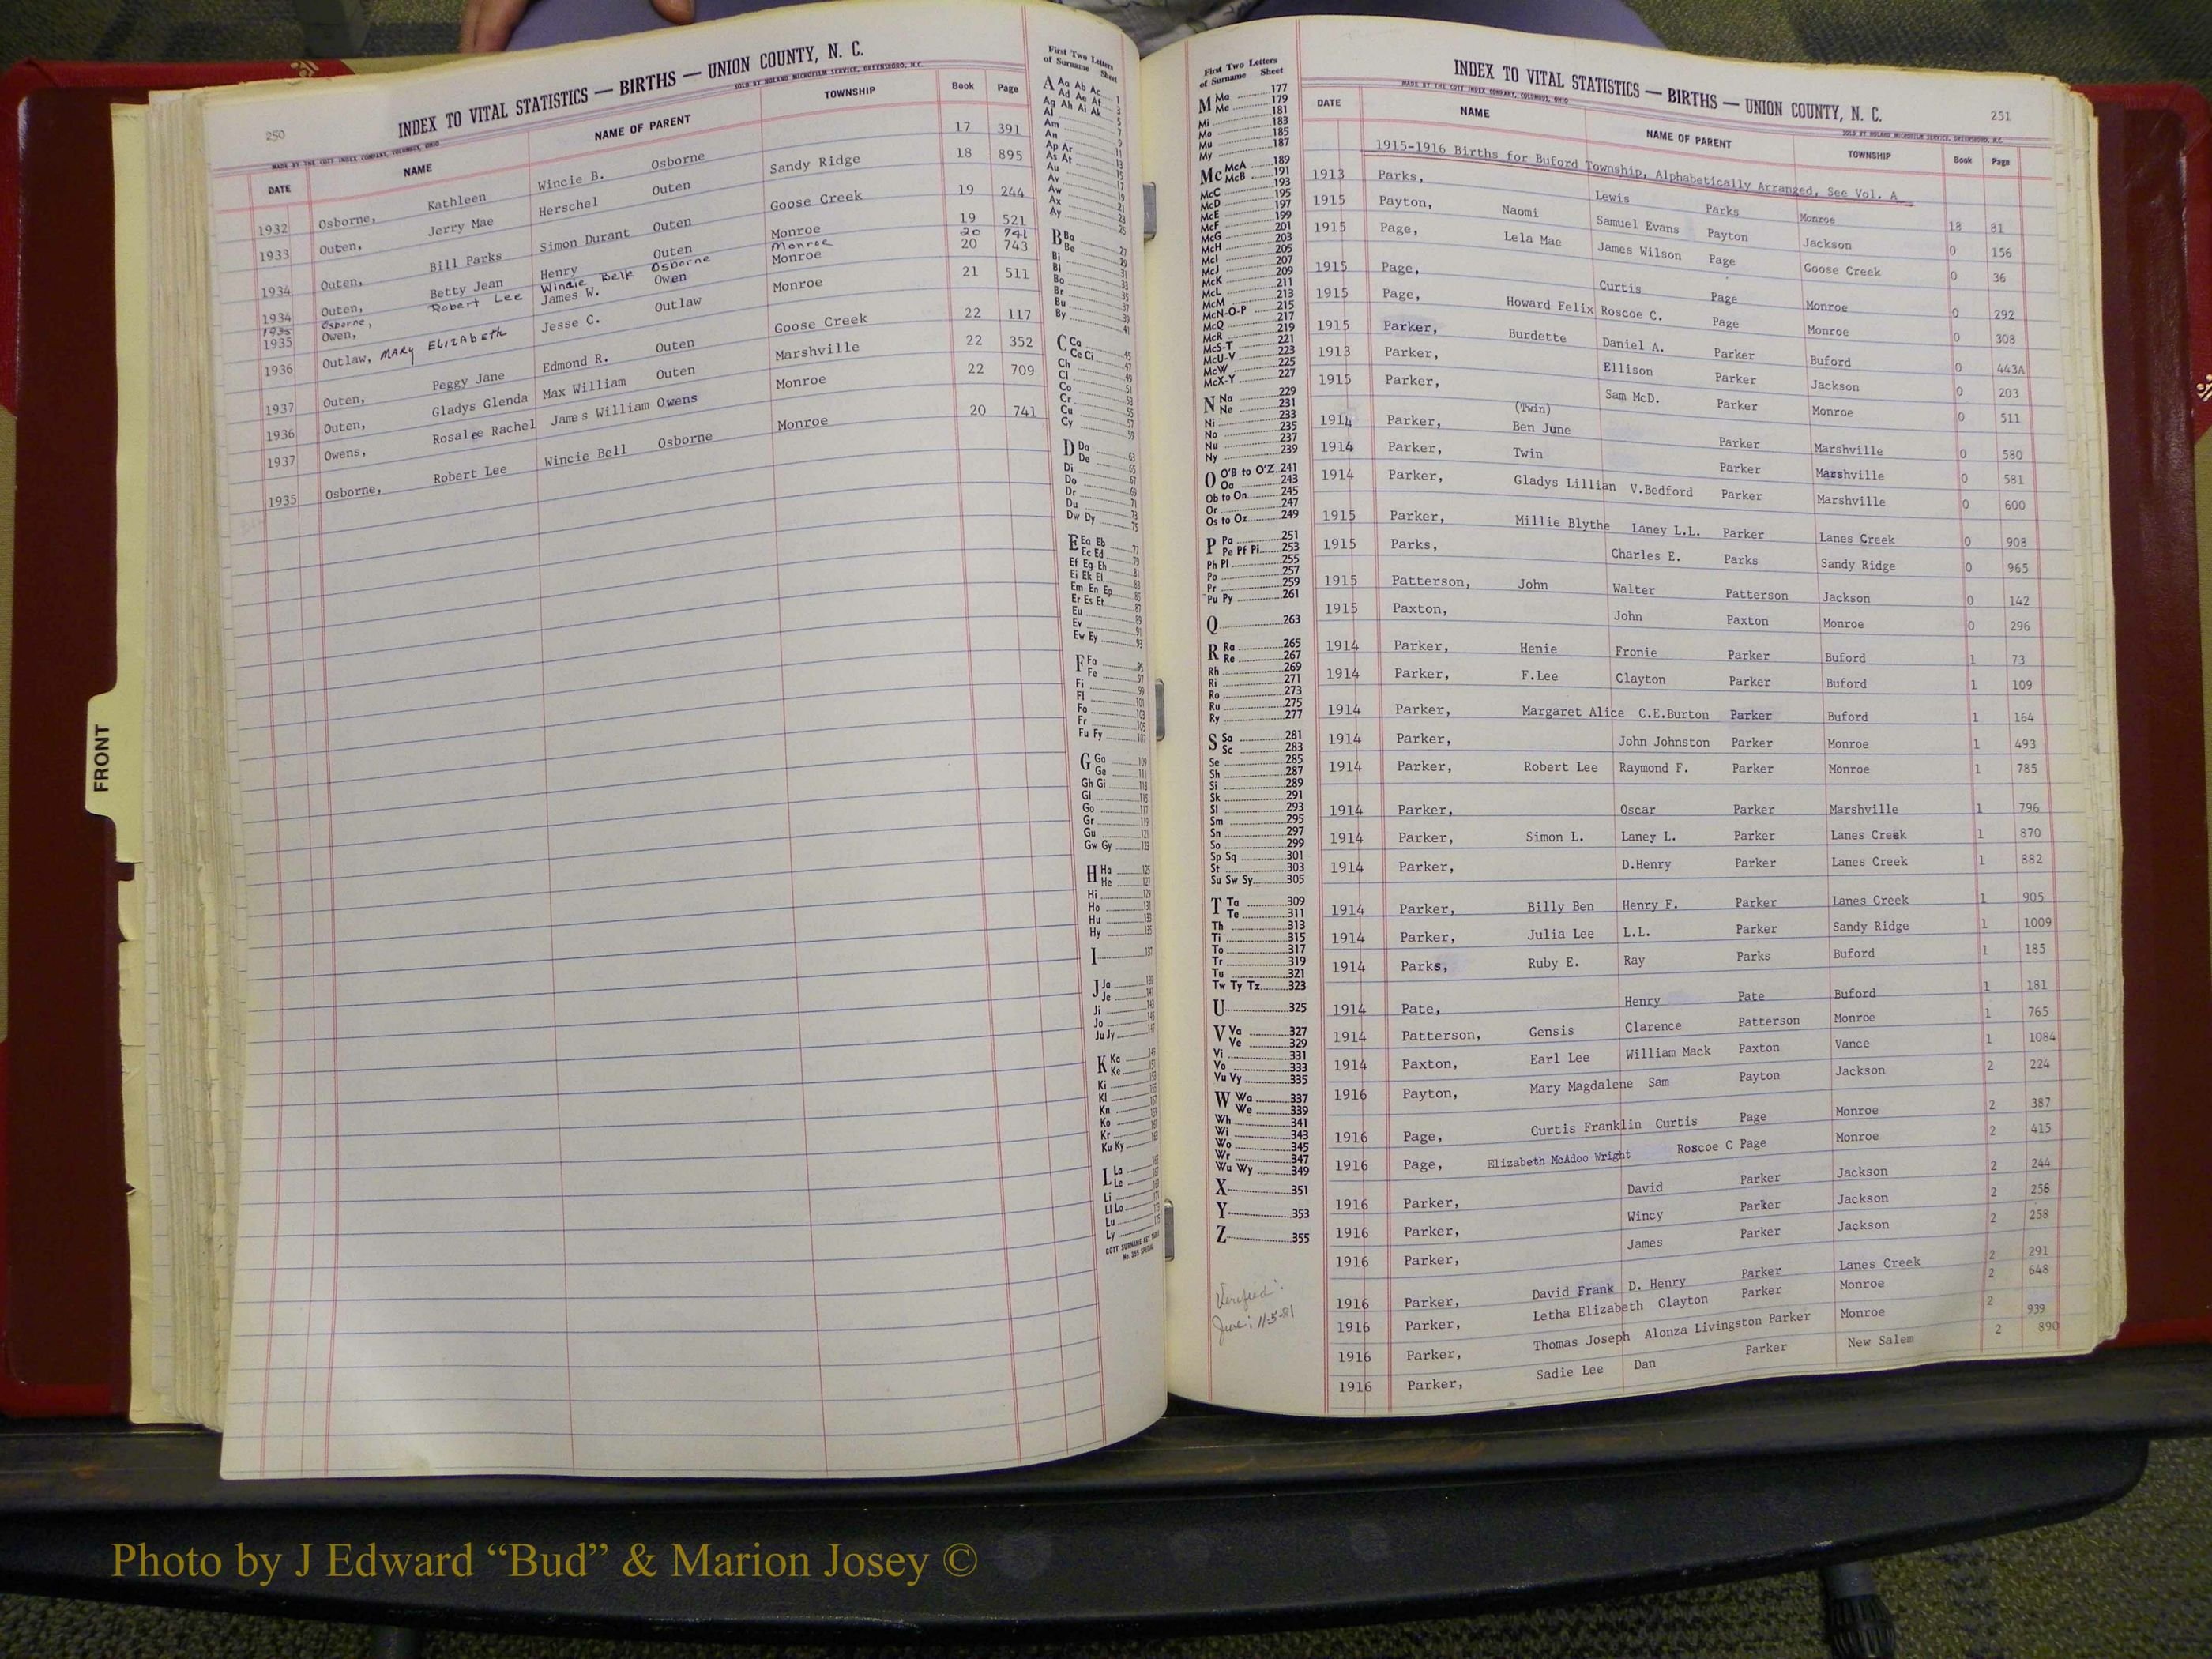 250
INDEX TO VITAL STATISTICS — BIRTHS — UNION COUNTY, N. C.
MADE BY THE COTT INDEX COMPANY, COLUMBUS, OHIO SOLD BY ROLAND MICROFILM SERVICE, GREENSBORO, N.C.
DATE NAME NAME OF PARENT TOWNSHIP Book Page
1932 Osborne, Kathleen Wincie B. Osborne 17 391
1933 Outen, Jerry Mae Herschel Outen Sandy Ridge 18 895
1934 Outen, Bill Parks Simon Durant Outen Goose Creek 19 244
1934 Outen, Betty Jean Henry Outen Monroe 19 521
1935 Osborne, Robert Lee Wincie Belk Osborne Monroe 20 741
1935 Owen, James W. Owen Monroe 20 743
1936 Outlaw, MARY ELIZABETH Jesse C. Outlaw Monroe 21 511
1937 Outen, Peggy Jane Edmond R. Outen Goose Creek 22 117
1936 Outen, Gladys Glenda Max William Outen Marshville 22 352
1937 Owens, Rosalee Rachel James William Owens Monroe 22 709
1935 Osborne, Robert Lee Wincie Bell Osborne Monroe 20 741
First Two Letters
of Surname Sheet
A Aa Ab Ac 1
Ad Ae Af 3
Ag Ah Ai Ak 5
Al 7
Am 9
An 11
Ap Ar 13
As At 15
Au 17
Av 19
Aw 21
Ax 23
Ay 25
B Ba 27
Be 29
Bi 31
Bl 33
Bo 35
Br 37
Bu 39
By 41
C Ca 45
Ce Ci 47
Ch 49
Cl 51
Co 53
Cr 55
Cu 57
Cy 59
D Da 63
De 65
Di 67
Do 69
Dr 71
Du 73
Dw Dy 75
E Ea Eb 77
Ec Ed 79
Ef Eg Eh 81
Ei Ek El 83
Em En Ep 85
Er Es Et 87
Eu 89
Ev 91
Ew Ey 93
F Fa 95
Fe 97
Fi 99
Fl 101
Fo 103
Fr 105
Fu Fy 107
G Ga 109
Ge 111
Gh Gi 113
Gl 115
Go 117
Gr 119
Gu 121
Gw Gy 123
H Ha 125
He 127
Hi 129
Ho 131
Hu 133
Hy 135
I 137
J Ja 139
Je 141
Ji 143
Jo 145
Ju Jy 147
K Ka 149
Ke
Ki
Kl
Kn
Ko
Kr
Ku Ky
L La
Le
Li
Ll Lo
Lu
Ly
COTT SURNAME KEY TABLE
FRONT
First Two Letters
of Surname Sheet
M Ma 177
Me 179
Mi 181
Mo 183
Mu 185
My 187
Mc McA 189
McB 191
McC 193
McD 195
McE 197
McF 199
McG 201
McH 203
McI 205
McJ 207
McK 209
McL 211
McM 213
McN-O-P 215
McQ 217
McR 219
McS-T 221
McU-V 223
McW 225
McX-Y 227
N Na 229
Ne 231
Ni 233
No 235
Nu 237
Ny 239
O O'B to O'Z 241
Oa 243
Ob to On 245
Or 247
Os to Oz 249
P Pa 251
Pe Pf Pi 253
Ph Pl 255
Po 257
Pr 259
Pu Py 261
Q 263
R Ra 265
Re 267
Rh 269
Ri 271
Ro 273
Ru 275
Ry 277
S Sa 281
Sc 283
Se 285
Sh 287
Si 289
Sk 291
Sl 293
Sm 295
Sn 297
So 299
Sp Sq 301
St 303
Su Sw Sy 305
T Ta 309
Te 311
Th 313
Ti 315
To 317
Tr 319
Tu 321
Tw Ty Tz 323
U 325
V Va 327
Ve 329
Vi 331
Vo 333
Vu Vy 335
W Wa 337
We 339
Wh 341
Wi 343
Wo 345
Wr 347
Wu Wy 349
X 351
Y 353
Z 355
Verified:
June: 11-5-81
INDEX TO VITAL STATISTICS — BIRTHS — UNION COUNTY, N. C. 251
MADE BY THE COTT INDEX COMPANY, COLUMBUS, OHIO SOLD BY ROLAND MICROFILM SERVICE, GREENSBORO, N.C.
DATE NAME NAME OF PARENT TOWNSHIP Book Page
1915-1916 Births for Buford Township, Alphabetically Arranged, See Vol. A
1913 Parks, Lewis Parks Monroe 18 81
1915 Payton, Naomi Samuel Evans Payton Jackson 0 156
1915 Page, Lela Mae James Wilson Page Goose Creek 0 36
1915 Page, Curtis Page Monroe 0 292
1915 Page, Howard Felix Roscoe C. Page Monroe 0 308
1915 Parker, Burdette Daniel A. Parker Buford 0 443A
1913 Parker, Ellison Parker Jackson 0 203
1915 Parker, Sam McD. Parker Monroe 0 511
1914 Parker, (Twin) Ben June Parker Marshville 0 580
1914 Parker, Twin Parker Marshville 0 581
1914 Parker, Gladys Lillian V.Bedford Parker Marshville 0 600
1915 Parker, Millie Blythe Laney L.L. Parker Lanes Creek 0 908
1915 Parks, Charles E. Parks Sandy Ridge 0 965
1915 Patterson, John Walter Patterson Jackson 0 142
1915 Paxton, John Paxton Monroe 0 296
1914 Parker, Henie Fronie Parker Buford 1 73
1914 Parker, F.Lee Clayton Parker Buford 1 109
1914 Parker, Margaret Alice C.E.Burton Parker Buford 1 164
1914 Parker, John Johnston Parker Monroe 1 493
1914 Parker, Robert Lee Raymond F. Parker Monroe 1 785
1914 Parker, Oscar Parker Marshville 1 796
1914 Parker, Simon L. Laney L. Parker Lanes Creek 1 870
1914 Parker, D.Henry Parker Lanes Creek 1 882
1914 Parker, Billy Ben Henry F. Parker Lanes Creek 1 905
1914 Parker, Julia Lee L.L. Parker Sandy Ridge 1 1009
1914 Parks, Ruby E. Ray Parks Buford 1 185
1914 Pate, Henry Pate Buford 1 181
1914 Patterson, Gensis Clarence Patterson Monroe 1 765
1914 Paxton, Earl Lee William Mack Paxton Vance 1 1084
1916 Payton, Mary Magdalene Sam Payton Jackson 2 224
1916 Page, Curtis Franklin Curtis Page Monroe 2 387
1916 Page, Elizabeth McAdoo Wright Roscoe C Page Monroe 2 415
1916 Parker, David Parker Jackson 2 244
1916 Parker, Wincy Parker Jackson 2 256
1916 Parker, James Parker Jackson 2 258
1916 Parker, David Frank D. Henry Parker Lanes Creek 2 291
1916 Parker, Letha Elizabeth Clayton Parker Monroe 2 648
1916 Parker, Thomas Joseph Alonza Livingston Parker Monroe 2 939
1916 Parker, Sadie Lee Dan Parker New Salem 2 890
Photo by J Edward “Bud” & Marion Josey ©